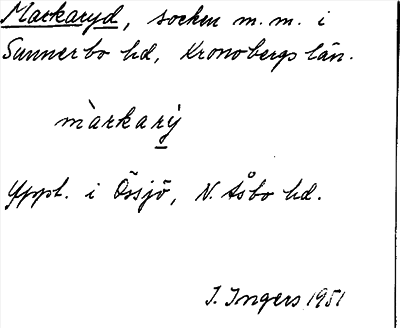 Markaryd, socken m.m. i
Sunnerbo hd, Kronobergs län.
màrkarý
Uppt. i Össjö, N. Åsbo hd.
I. Ingers 1951